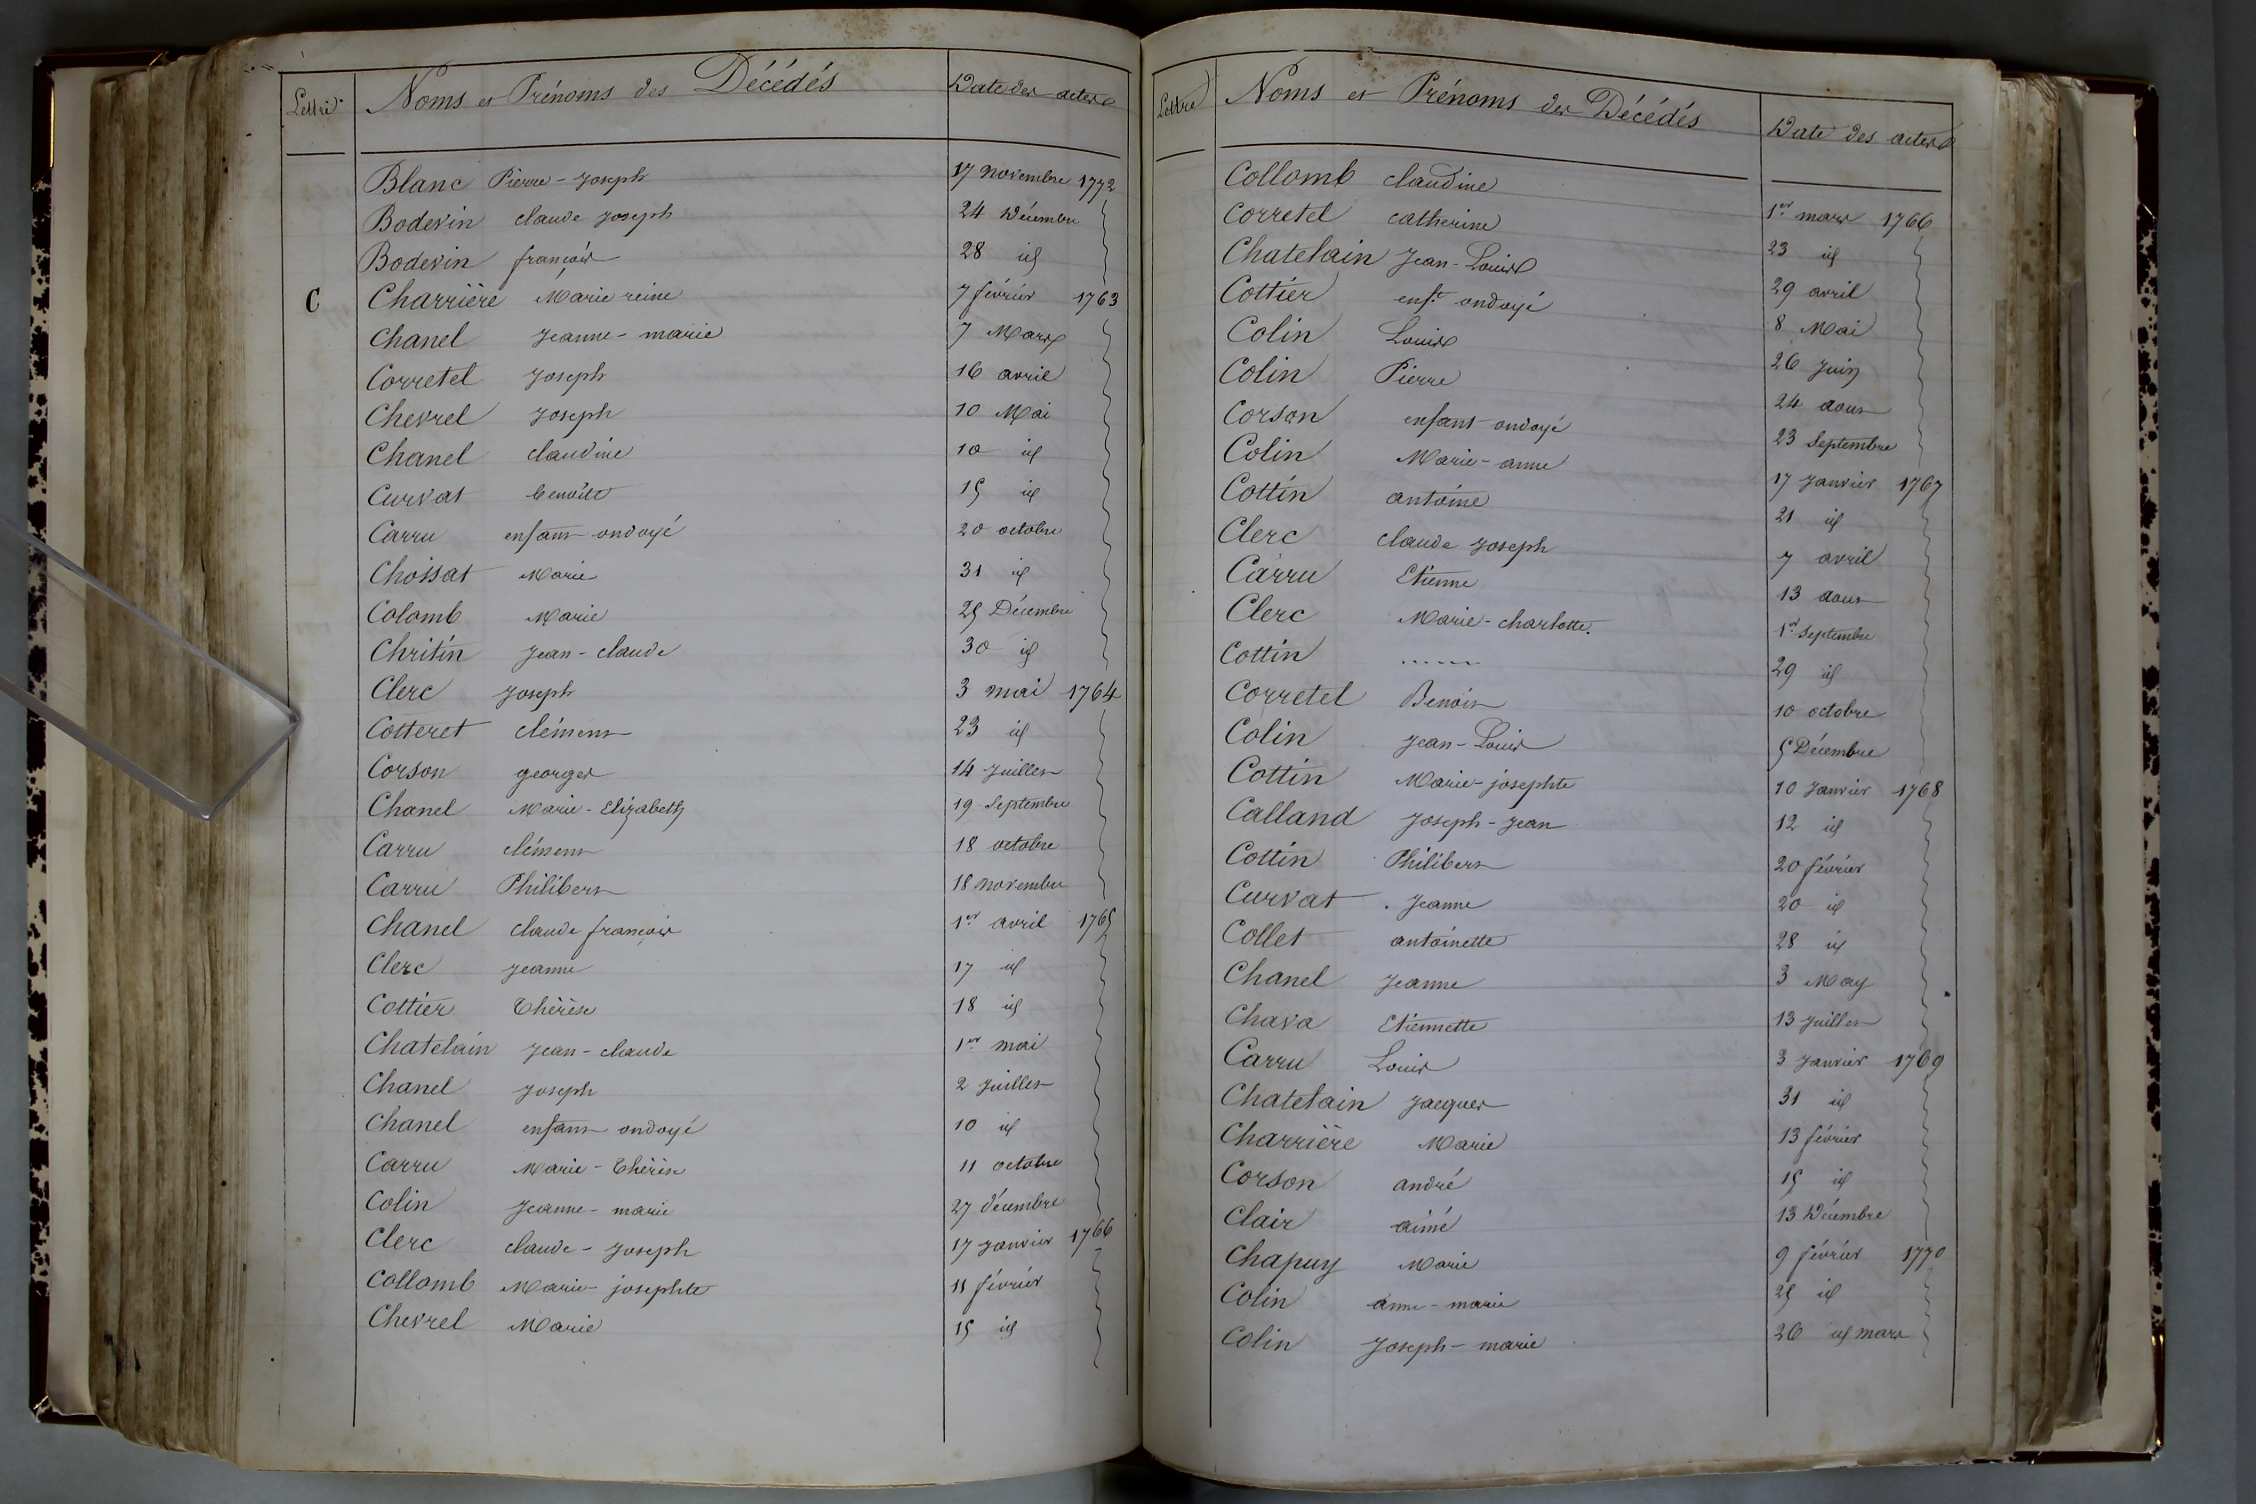 Lettre Noms et Prénoms des Décédés Date des actes
Blanc Pierre-Joseph 17 Novembre 1772
Bodevin claude Joseph 24 Décembre
Bodevin françois 28 id
C Charrière Marie reine 7 février 1763
Chanel Jeanne-marie 7 Mars
Corretel Joseph 16 avril
Chevrel Joseph 10 Mai
Chanel claudine 10 id
Curvat benoite 15 id
Carru enfant ondoyé 20 octobre
Chossat Marie 31 id
Colomb Marie 25 Décembre
Chritin Jean-claude 30 id
Clerc Joseph 3 mai 1764
Cotteret clément 23 id
Corson georges 14 Juillet
Chanel Marie-Elizabeth 19 Septembre
Carru clément 18 octobre
Carru Philibert 18 novembre
Chanel claude françois 1er avril 1765
Clerc Jeanne 17 id
Cottier Thérèse 18 id
Chatelain Jean-claude 1er mai
Chanel Joseph 2 Juillet
Chanel enfant ondoyé 10 id
Carru Marie-Thérèse 11 octobre
Colin Jeanne-marie 27 décembre
Clerc claude-Joseph 17 Janvier 1766
Collomb Marie-josephte 11 février
Chevrel Marie 15 id
Lettre Noms et Prénoms des Décédés Date des actes
Collomb claudine
Corretel catherine 1er mars 1766
Chatelain Jean-Louis 23 id
Cottier enft ondoyé 29 avril
Colin Louis 8 Mai
Colin Pierre 26 Juin
Corson enfant ondoyé 24 aout
Colin Marie-anne 23 Septembre
Cottin antoine 17 Janvier 1767
Clerc claude Joseph 21 id
Carru Etienne 7 avril
Clerc Marie-charlotte. 13 aout
Cottin ....... 1er Septembre
Corretel Benoit 29 id
Colin Jean-Louis 10 octobre
Cottin Marie-josephte 5 Décembre
Calland Joseph-Jean 10 Janvier 1768
Cottin Philibert 12 id
Curvat Jeanne 20 février
Collet antoinette 20 id
Chanel Jeanne 28 id
Chava Etiennette 3 May
Carru Louis 13 Juillet
Chatelain Jacques 3 Janvier 1769
Charrière Marie 31 id
Corson andré 13 février
Clair aimé 15 id
Chapuy Marie 13 Décembre
Colin anne-marie 9 février 1770
Colin Joseph-marie 25 id
26 id mars